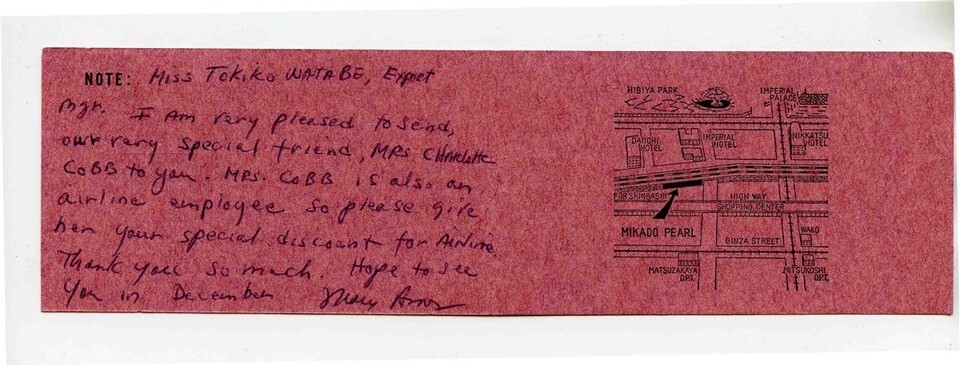 NOTE: Miss Tokiko WATABE, Export
Mgr. I Am very pleased to send,
our very special friend, MRs Charlotte
CoBB to you. MRs. CoBB is also an
airline employee so please give
her your special discount for Airline.
Thank you so much. Hope to see
you in December Mary
HIBIYA PARK
IMPERIAL
PALACE
DAIICHI
HOTEL
IMPERIAL
HOTEL
NIKKATSU
HOTEL
FOR SHINBASHI
HIGH WAY
SHOPPING CENTER
MIKADO PEARL
GINZA STREET
WAKO
MATSUZAKAYA
DPT.
MITSUKOSHI
DPT.